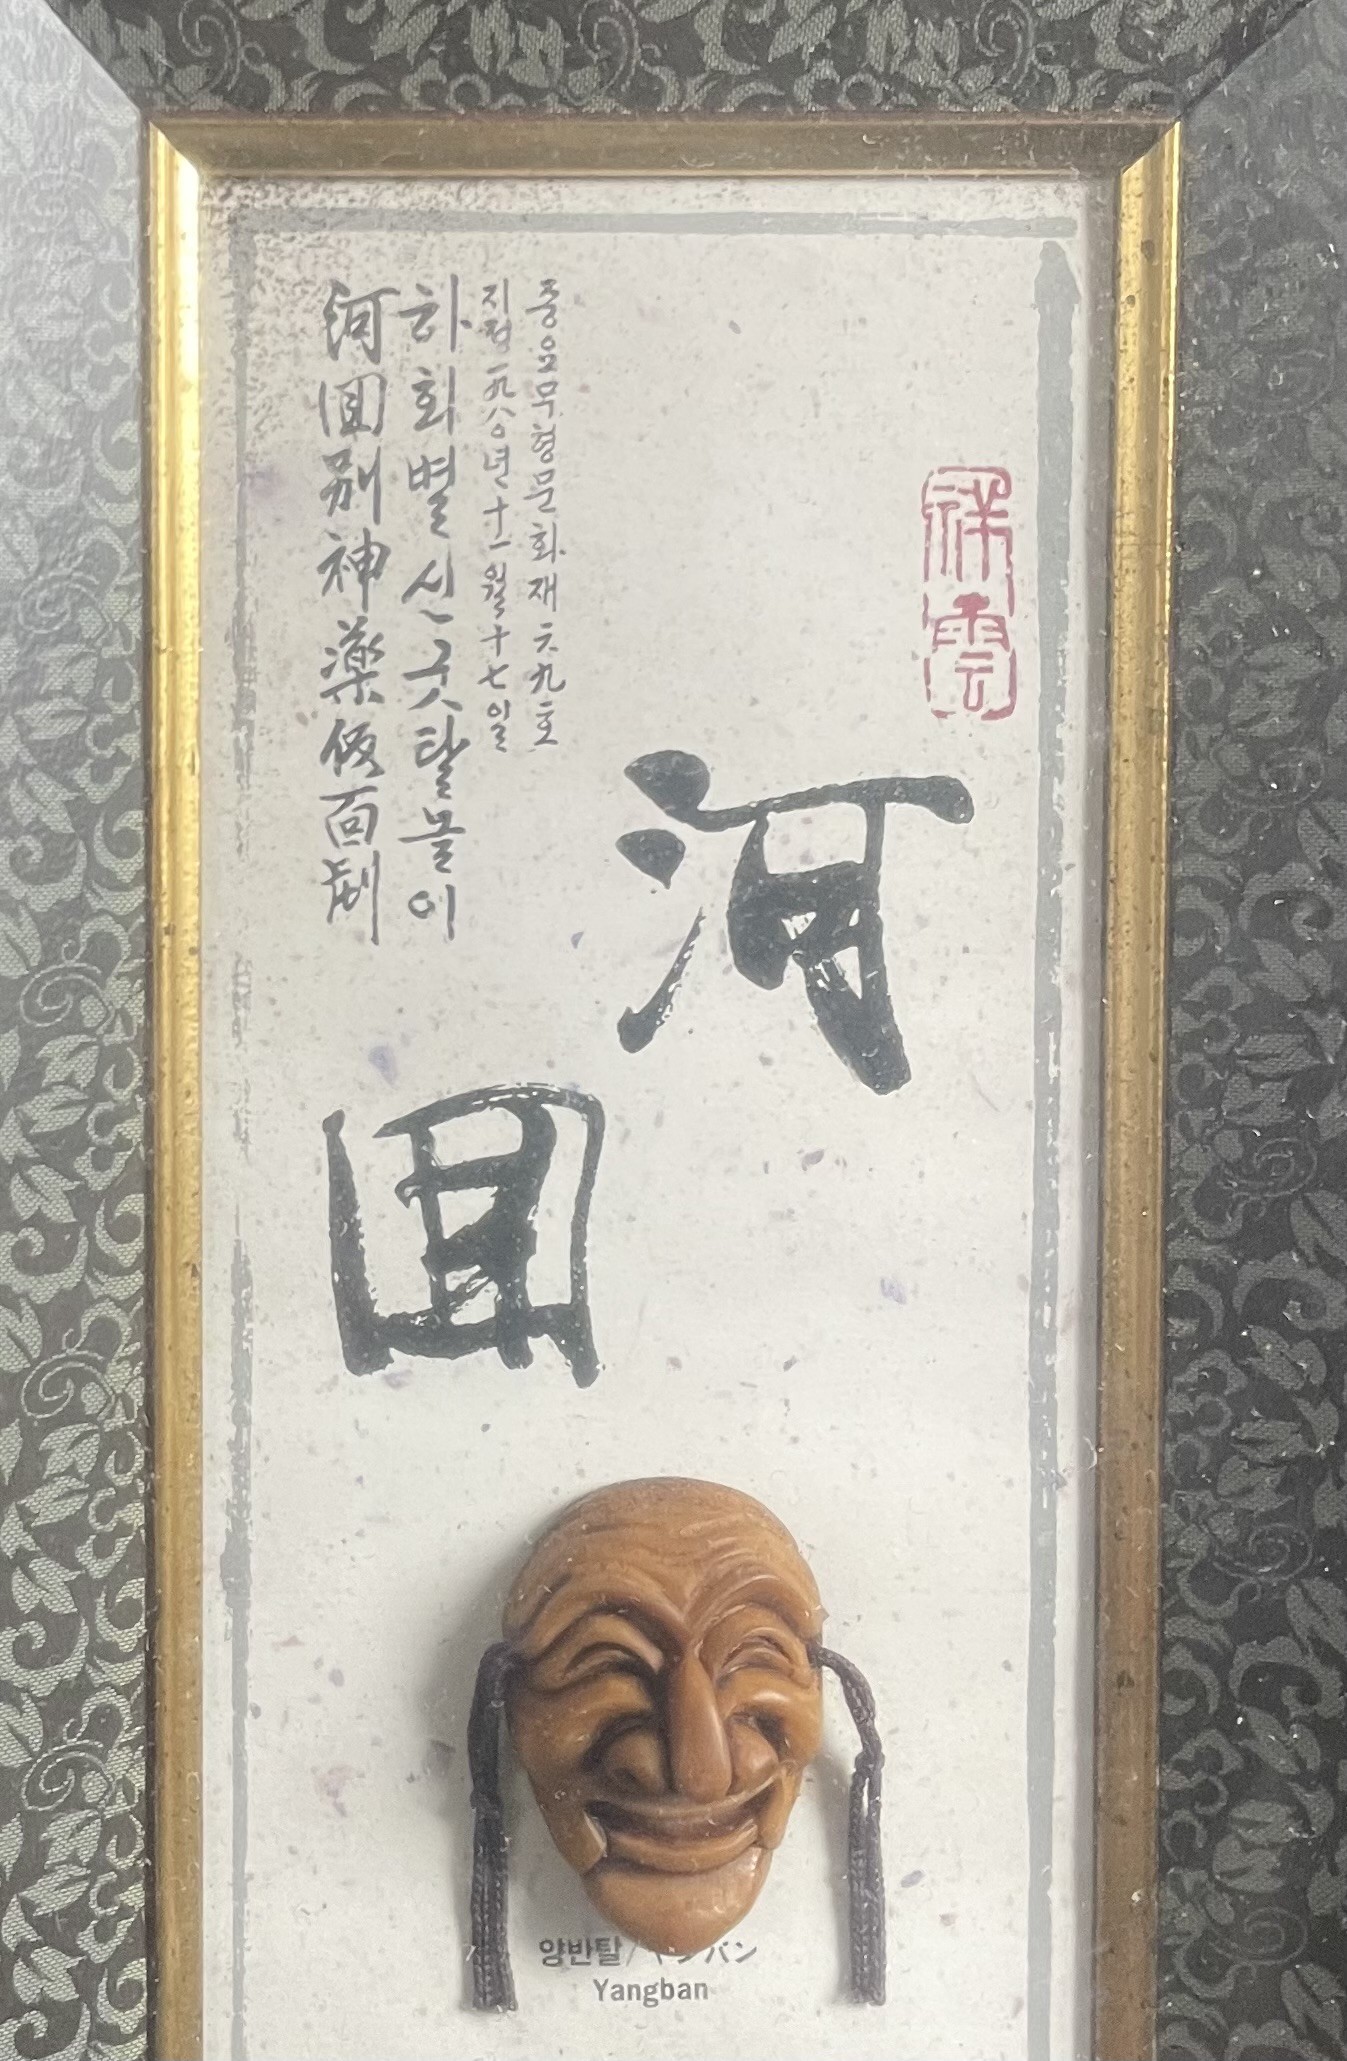 祥雲
河
回
중요무형문화재 六九호
지정 一九八〇년 十一월 十七일
하회별신굿탈놀이
河回別神薬仮面劇
양반탈/ヤンバン
Yangban